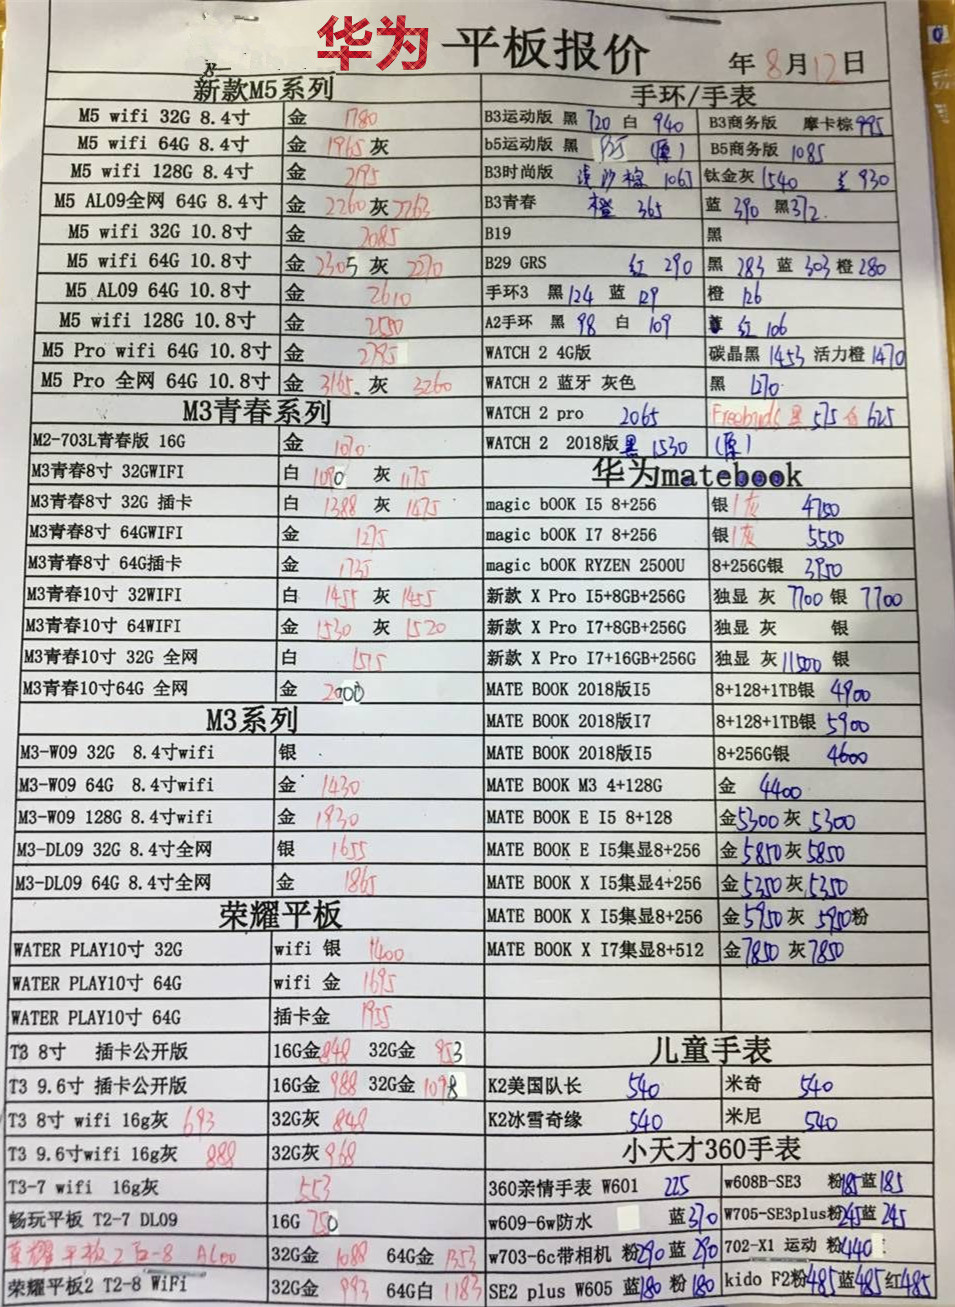 华为 平板报价 年8月12日
新款M5系列
M5 wifi 32G 8.4寸 金 1780
M5 wifi 64G 8.4寸 金 1965 灰
M5 wifi 128G 8.4寸 金 2195
M5 AL09全网 64G 8.4寸 金 2260 灰 2263
M5 wifi 32G 10.8寸 金 2085
M5 wifi 64G 10.8寸 金 2305 灰 2270
M5 AL09 64G 10.8寸 金 2610
M5 wifi 128G 10.8寸 金 2550
M5 Pro wifi 64G 10.8寸 金 2795
M5 Pro 全网 64G 10.8寸 金 3165. 灰 3260
M3青春系列
M2-703L青春版 16G 金 1070
M3青春8寸 32GWIFI 白 1090 灰 1175
M3青春8寸 32G 插卡 白 1388 灰 1475
M3青春8寸 64GWIFI 金 1275
M3青春8寸 64G插卡 金 1735
M3青春10寸 32WIFI 白 1455 灰 1455
M3青春10寸 64WIFI 金 1530 灰 1520
M3青春10寸 32G 全网 白 1515
M3青春10寸64G 全网 金 2000
M3系列
M3-W09 32G 8.4寸wifi 银
M3-W09 64G 8.4寸wifi 金 1430
M3-W09 128G 8.4寸wifi 金 1930
M3-DL09 32G 8.4寸全网 银 1655
M3-DL09 64G 8.4寸全网 金 1865
荣耀平板
WATER PLAY10寸 32G wifi 银 1400
WATER PLAY10寸 64G wifi 金 1695
WATER PLAY10寸 64G 插卡金 1955
T3 8寸 插卡公开版 16G金 848 32G金 953
T3 9.6寸 插卡公开版 16G金 988 32G金 1098
T3 8寸 wifi 16g灰 693 32G灰 848
T3 9.6寸wifi 16g灰 888 32G灰 968
T3-7 wifi 16g灰 553
畅玩平板 T2-7 DL09 16G 750
荣耀平板2 -8 AL00 32G金 1088 64G金 1353
荣耀平板2 T2-8 WiFi 32G金 993 64G白 1183
手环/手表
B3运动版 黑 720 白 940 B3商务版 摩卡棕 995
b5运动版 黑 935 B5商务版 1085
B3时尚版 沙棕 1065 钛金灰 1540 930
B3青春 橙 365 蓝 390 黑 372
B19 黑
B29 GRS 红 290 黑 283 蓝 303 橙 280
手环3 黑 124 蓝 129 橙 126
A2手环 黑 98 白 109 红 106
WATCH 2 4G版 碳晶黑 1453 活力橙 1470
WATCH 2 蓝牙 灰色 黑 1270
WATCH 2 pro 2065 Freebuds 黑 575 白 625
WATCH 2 2018版 黑 1530
华为matebook
magic bOOK I5 8+256 银 灰 4750
magic bOOK I7 8+256 银 灰 5550
magic bOOK RYZEN 2500U 8+256G银 3950
新款 X Pro I5+8GB+256G 独显 灰 7700 银 7700
新款 X Pro I7+8GB+256G 独显 灰 银
新款 X Pro I7+16GB+256G 独显 灰 11500 银
MATE BOOK 2018版I5 8+128+1TB银 4900
MATE BOOK 2018版I7 8+128+1TB银 5900
MATE BOOK 2018版I5 8+256G银 4600
MATE BOOK M3 4+128G 金 4400
MATE BOOK E I5 8+128 金 5300 灰 5300
MATE BOOK E I5集显8+256 金 5850 灰 5850
MATE BOOK X I5集显4+256 金 5350 灰 5350
MATE BOOK X I5集显8+256 金 5950 灰 5950 粉
MATE BOOK X I7集显8+512 金 7850 灰 7850
儿童手表
K2美国队长 540 米奇 540
K2冰雪奇缘 540 米尼 540
小天才360手表
360亲情手表 W601 225 w608B-SE3 粉 185 蓝 185
w609-6w防水 蓝 370 W705-SE3plus粉 245 蓝 245
w703-6c带相机 粉 290 蓝 290 702-X1 运动 粉 440
SE2 plus W605 蓝 180 粉 180 kido F2粉 485 蓝 485 红 485